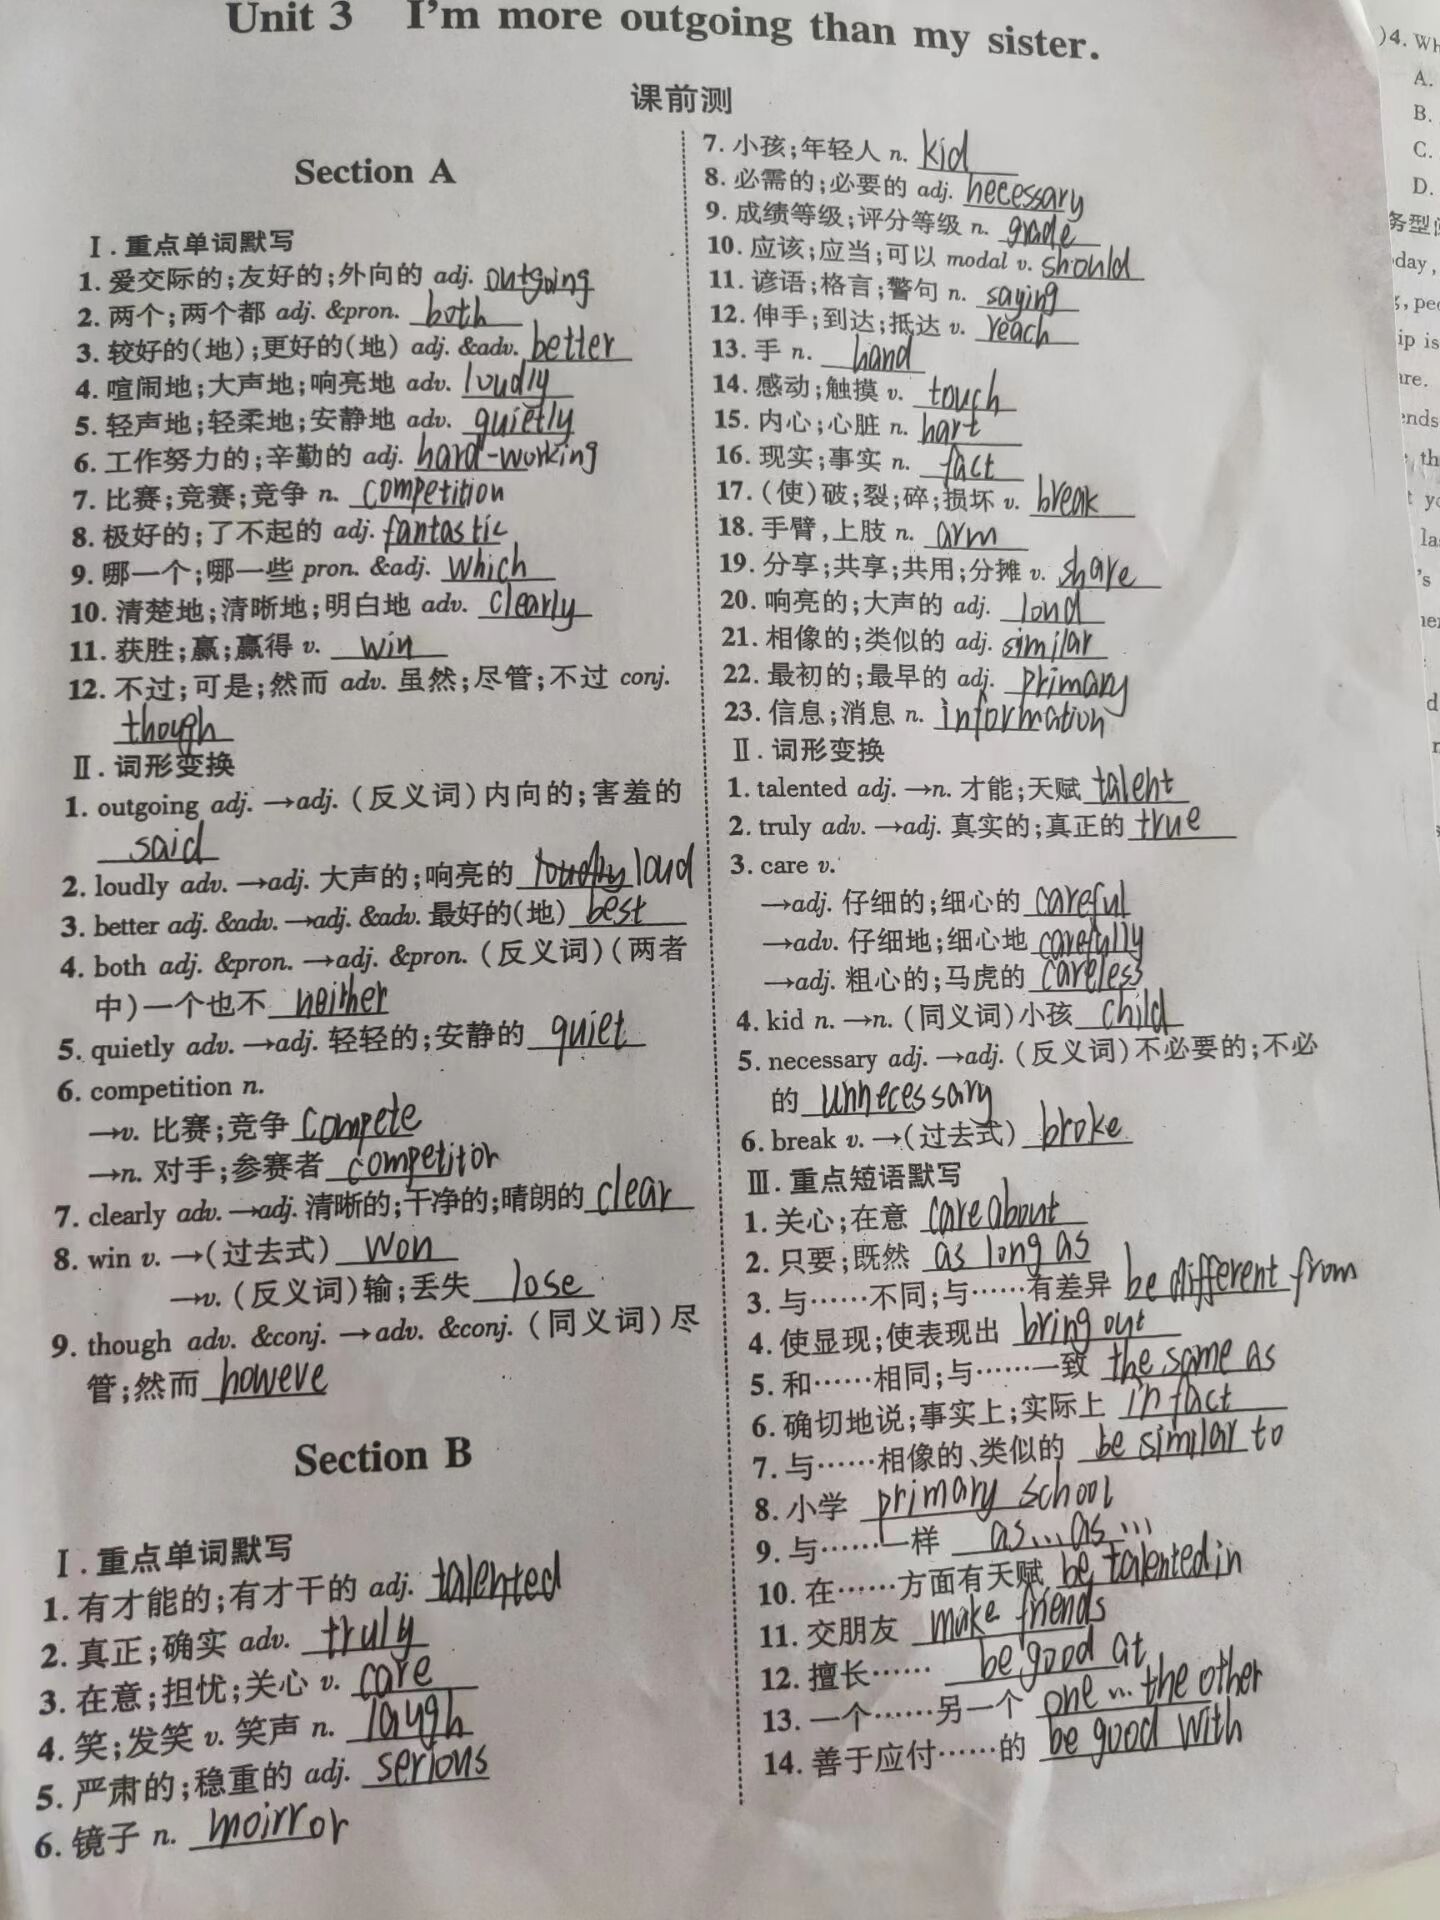 Unit 3 I'm more outgoing than my sister.
课前测
Section A
Ⅰ.重点单词默写
1. 爱交际的;友好的;外向的 adj. outgoing
2. 两个;两个都 adj. &pron. both
3. 较好的(地);更好的(地) adj. &adv. better
4. 喧闹地;大声地;响亮地 adv. loudly
5. 轻声地;轻柔地;安静地 adv. quietly
6. 工作努力的;辛勤的 adj. hard-working
7. 比赛;竞赛;竞争 n. competition
8. 极好的;了不起的 adj. fantastic
9. 哪一个;哪一些 pron. &adj. which
10. 清楚地;清晰地;明白地 adv. clearly
11. 获胜;赢;赢得 v. win
12. 不过;可是;然而 adv. 虽然;尽管;不过 conj.
though
Ⅱ.词形变换
1. outgoing adj. →adj. (反义词)内向的;害羞的
said
2. loudly adv. →adj. 大声的;响亮的 loudly loud
3. better adj. &adv. →adj. &adv. 最好的(地) best
4. both adj. &pron. →adj. &pron. (反义词)(两者
中)一个也不 neither
5. quietly adv. →adj. 轻轻的;安静的 quiet
6. competition n.
→v. 比赛;竞争 compete
→n. 对手;参赛者 competitor
7. clearly adv. →adj. 清晰的;干净的;晴朗的 clear
8. win v. →(过去式) won
→v. (反义词)输;丢失 lose
9. though adv. &conj. →adv. &conj. (同义词)尽
管;然而 howeve
Section B
Ⅰ.重点单词默写
1. 有才能的;有才干的 adj. talented
2. 真正;确实 adv. truly
3. 在意;担忧;关心 v. care
4. 笑;发笑 v. 笑声 n. laugh
5. 严肃的;稳重的 adj. serious
6. 镜子 n. moirror
7. 小孩;年轻人 n. kid
8. 必需的;必要的 adj. necessary
9. 成绩等级;评分等级 n. grade
10. 应该;应当;可以 modal v. should
11. 谚语;格言;警句 n. saying
12. 伸手;到达;抵达 v. reach
13. 手 n. hand
14. 感动;触摸 v. touch
15. 内心;心脏 n. hart
16. 现实;事实 n. fact
17. (使)破;裂;碎;损坏 v. break
18. 手臂,上肢 n. arm
19. 分享;共享;共用;分摊 v. share
20. 响亮的;大声的 adj. loud
21. 相像的;类似的 adj. similar
22. 最初的;最早的 adj. primary
23. 信息;消息 n. information
Ⅱ.词形变换
1. talented adj. →n. 才能;天赋 talent
2. truly adv. →adj. 真实的;真正的 true
3. care v.
→adj. 仔细的;细心的 careful
→adv. 仔细地;细心地 carefully
→adj. 粗心的;马虎的 careless
4. kid n. →n. (同义词)小孩 child
5. necessary adj. →adj. (反义词)不必要的;不必
的 unnecessary
6. break v. →(过去式) broke
Ⅲ.重点短语默写
1. 关心;在意 care about
2. 只要;既然 as long as
3. 与……不同;与……有差异 be different from
4. 使显现;使表现出 bring out
5. 和……相同;与……一致 the same as
6. 确切地说;事实上;实际上 in fact
7. 与……相像的、类似的 be similar to
8. 小学 primary school
9. 与……一样 as...as...
10. 在……方面有天赋 be talented in
11. 交朋友 make friends
12. 擅长…… be good at
13. 一个……另一个 one...the other
14. 善于应付……的 be good with
)4. Wh
A.
B.
C.
D.